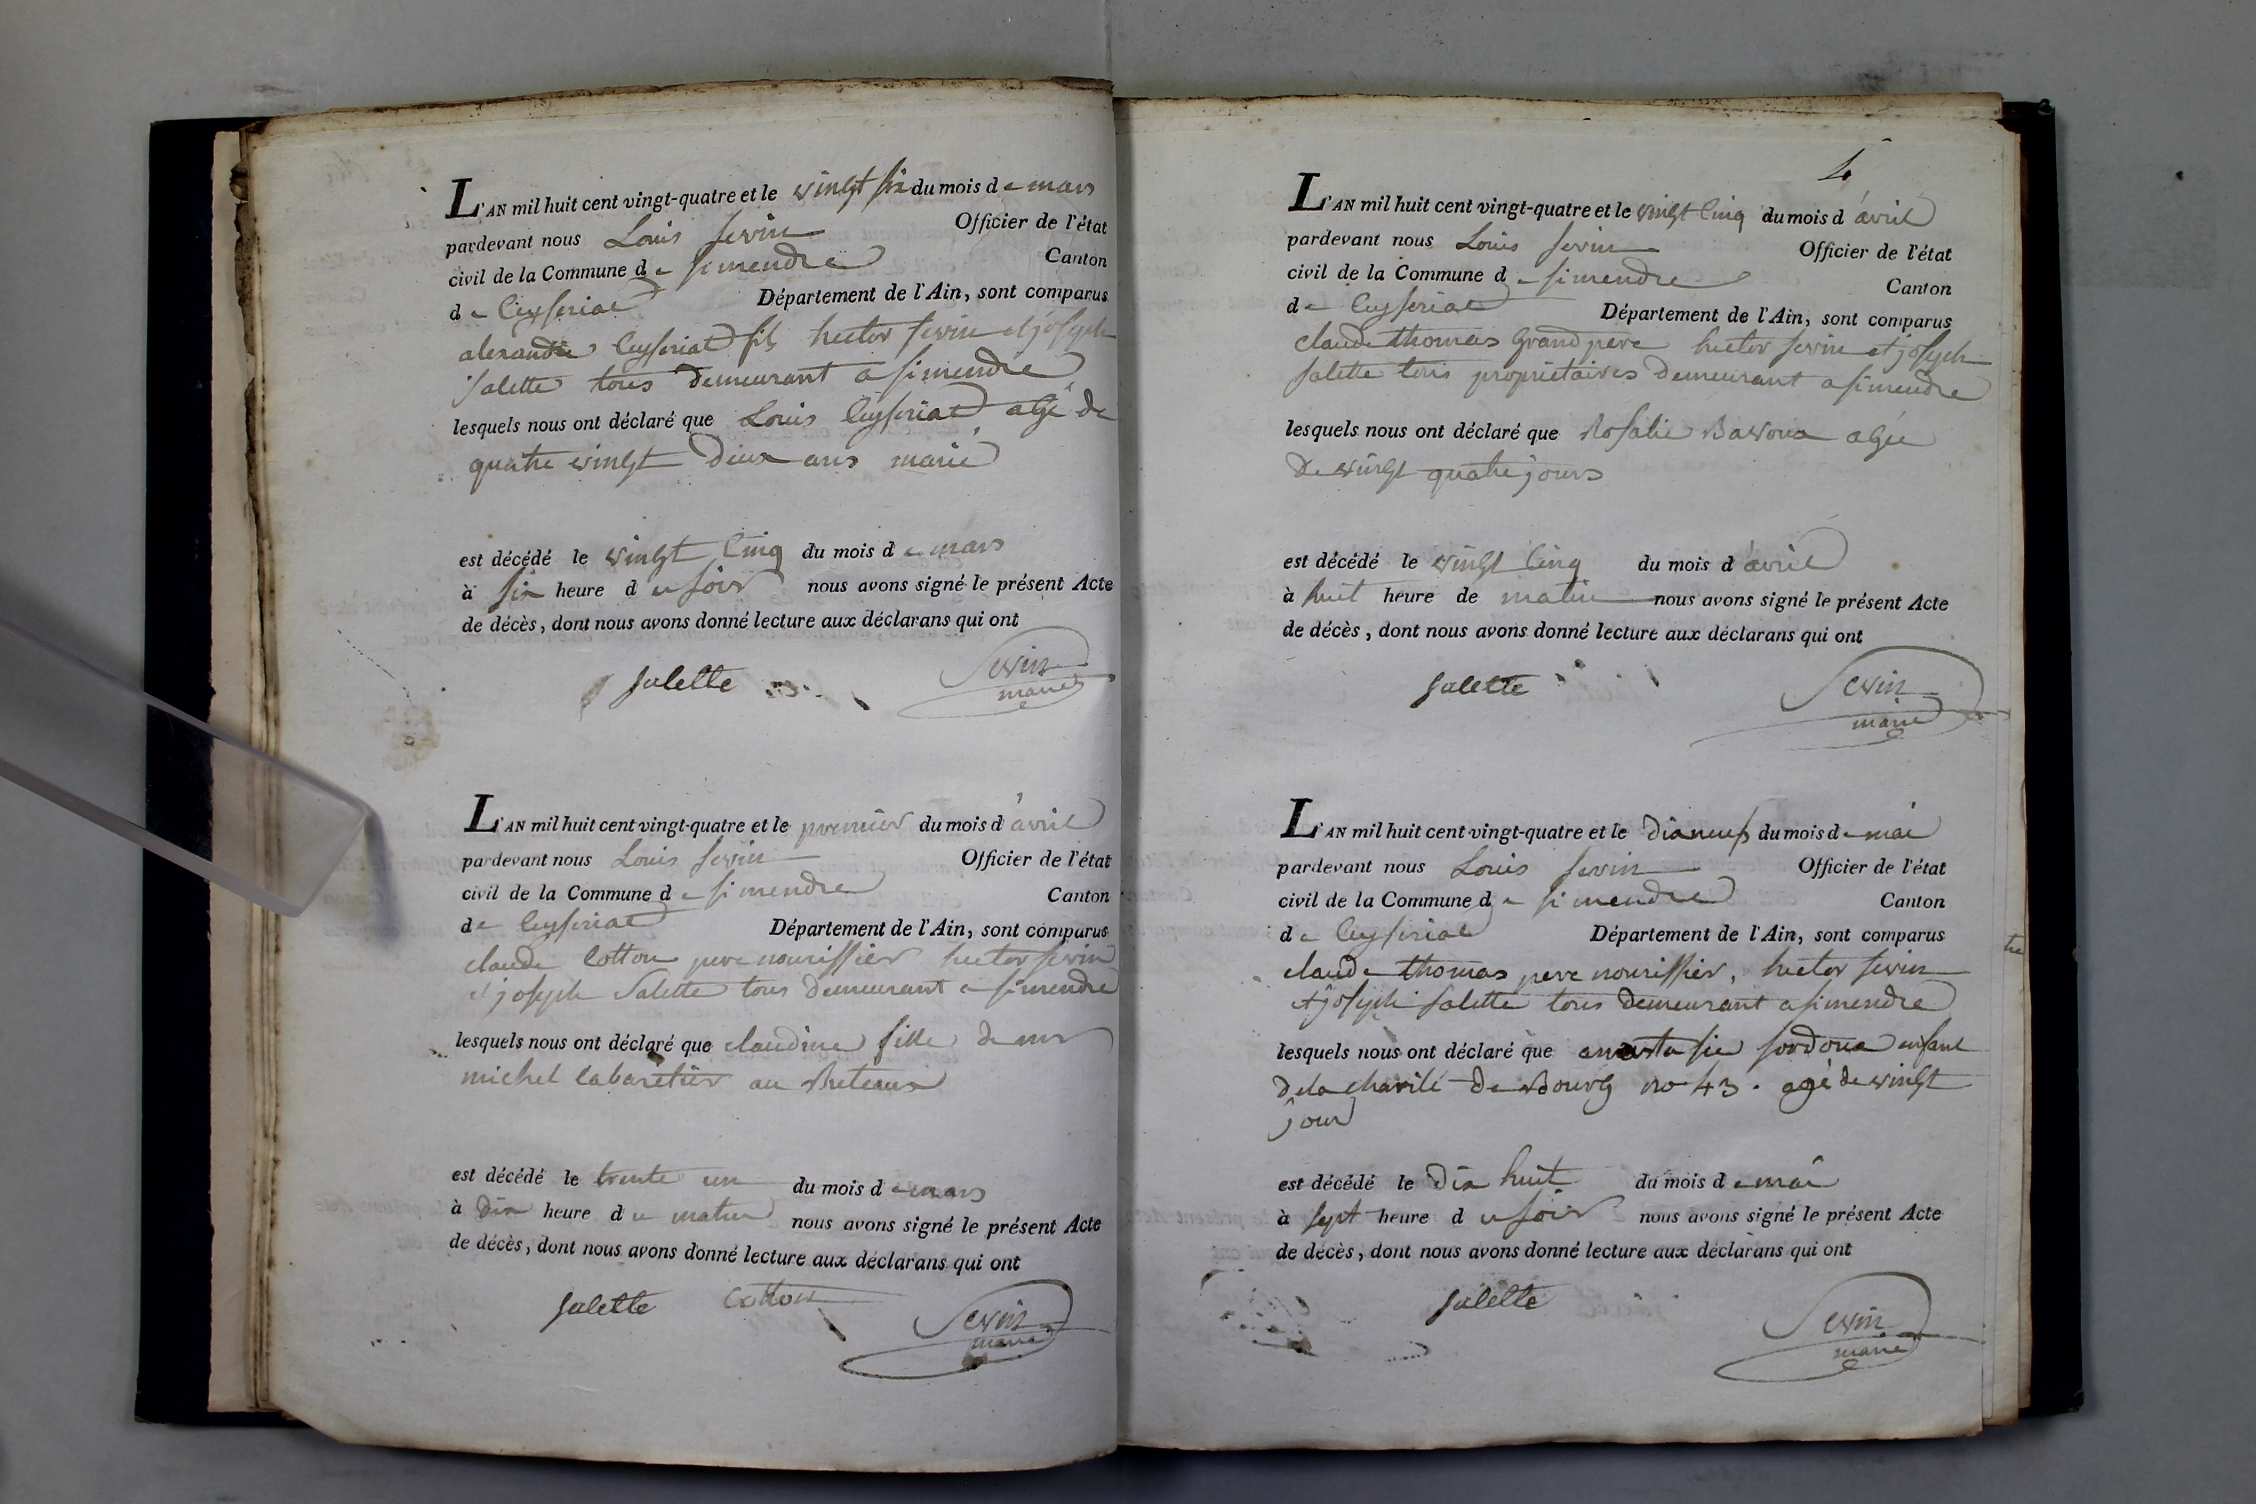 L'AN mil huit cent vingt-quatre et le vingt six du mois de mars
pardevant nous Louis Sevin Officier de l'état
civil de la Commune de simendre Canton
de Ceyseriat Département de l'Ain, sont comparus
alexandre Ceyseriat fils hector sevin et joseph
Salette tous demeurant a simendre
lesquels nous ont déclaré que Louis Ceyseriat agé de
quatre vingt deux ans marié
est décédé le vingt cinq du mois de mars
à six heure du soir nous avons signé le présent Acte
de décès, dont nous avons donné lecture aux déclarans qui ont
Salette Sevin
maire
L'AN mil huit cent vingt-quatre et le premier du mois d'avril
pardevant nous Louis Sevin Officier de l'état
civil de la Commune de simendre Canton
de Ceyseriat Département de l'Ain, sont comparus
claude Cotton pere nourissier hector sevin
et joseph Salette tous demeurant a simendre
lesquels nous ont déclaré que claudine fille de mr
michel cabaretier au
est décédé le trente un du mois de mars
à dix heure du matin nous avons signé le présent Acte
de décès, dont nous avons donné lecture aux déclarans qui ont
Salette Cotton Sevin
maire
4
L'AN mil huit cent vingt-quatre et le vingt cinq du mois d'avril
pardevant nous Louis Sevin Officier de l'état
civil de la Commune de simendre Canton
de Ceyseriat Département de l'Ain, sont comparus
claude thomas grand pere hector sevin et joseph
Salette tous propriétaires demeurant a simendre
lesquels nous ont déclaré que Rosalie agée
de vingt quatre jours
est décédé le vingt cinq du mois d'avril
à huit heure de matin nous avons signé le présent Acte
de décès, dont nous avons donné lecture aux déclarans qui ont
Salette Sevin
maire
L'AN mil huit cent vingt-quatre et le dix neuf du mois de mai
pardevant nous Louis Sevin Officier de l'état
civil de la Commune de simendre Canton
de Ceyseriat Département de l'Ain, sont comparus
claude thomas pere nourissier, hector sevin
et joseph Salette tous demeurant a simendre
lesquels nous ont déclaré que anastasie enfant
de la charité de Bourg no 43. agé de vingt
jour
est décédé le dix huit du mois de mai
à sept heure du soir nous avons signé le présent Acte
de décès, dont nous avons donné lecture aux déclarans qui ont
Salette Sevin
maire